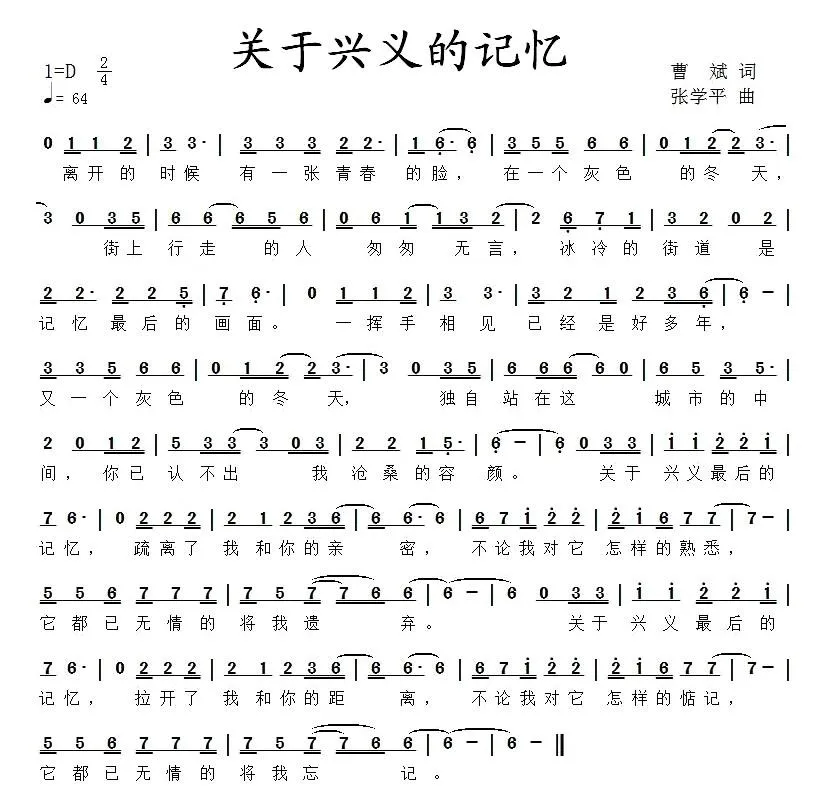 关于兴义的记忆
1=D 2/4
♩= 64
曹 斌 词
张学平 曲
0 1 1 2 | 3 3· | 3 3 3 2 2· | 1 6· 6 | 3 5 5 6 6 | 0 1 2 2 3· |
离开的 时候 有一张青春 的脸， 在一个灰色 的冬 天，
3 0 3 5 | 6 6 6 5 6 | 0 6 1 1 3 2 | 2 6 7 1 | 3 2 0 2 |
街上 行走 的人 匆匆 无言， 冰冷的 街道 是
2 2· 2 2 5 | 7 6· | 0 1 1 2 | 3 3· | 3 2 1 2 3 6 | 6 — |
记忆 最后的 画面。 一挥手 相见 已经是好多年，
3 3 5 6 6 | 0 1 2 2 3· | 3 0 3 5 | 6 6 6 6 0 | 6 5 3 5· |
又一个灰色 的冬 天， 独自 站在这 城市的中
2 0 1 2 | 5 3 3 3 0 3 | 2 2 1 5· | 6 — | 6 0 3 3 | i i 2 2 i |
间，你已 认不出 我 沧桑的容 颜。 关于 兴义最后的
7 6· | 0 2 2 2 | 2 1 2 3 6 | 6 6· 6 | 6 7 i 2 2 | 2 i 6 7 7 | 7 — |
记忆， 疏离了 我 和你的亲 密， 不论我对它 怎样的熟悉，
5 5 6 7 7 7 | 7 5 7 7 6 6 | 6 — | 6 0 3 3 | i i 2 2 i |
它都已无情的 将我遗 弃。 关于 兴义最后的
7 6· | 0 2 2 2 | 2 1 2 3 6 | 6 6· 6 | 6 7 i 2 2 | 2 i 6 7 7 | 7 — |
记忆， 拉开了 我 和你的距 离， 不论我对它 怎样的惦记，
5 5 6 7 7 7 | 7 5 7 7 6 6 | 6 — | 6 — ‖
它都已无情的 将我忘 记。